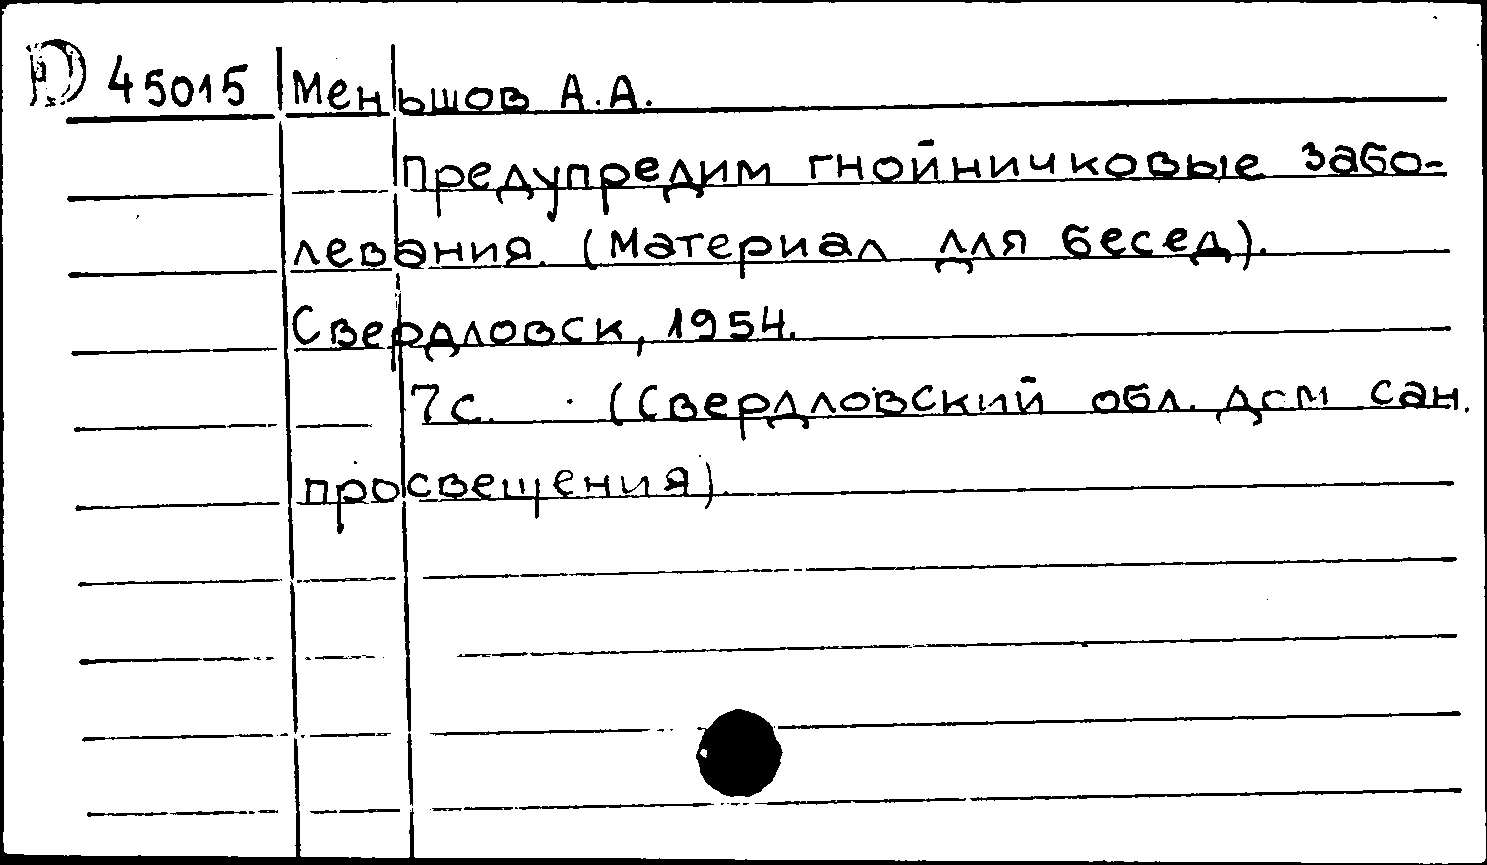 D 45015 Меньшов А.А.
Предупредим гнойничковые забо-
левания. (Материал для бесед).
Свердловск, 1954.
7с. (Свердловский обл. дом сан.
просвещения).